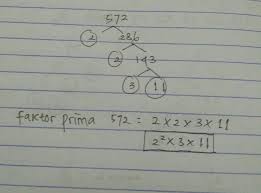 572
2 286
2 143
3 11
faktor prima 572 = 2 x 2 x 3 x 11
2² x 3 x 11